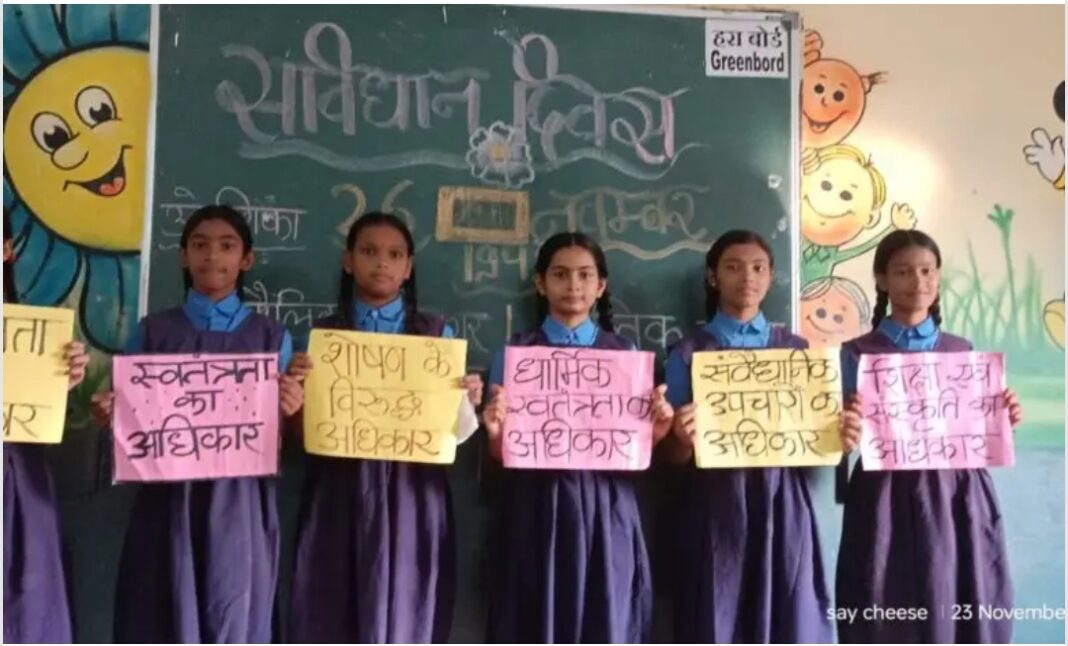 हरा बोर्ड
Greenbord
संविधान दिवस
26 नवम्बर
स्वतंत्रता
का
अधिकार
शोषण के
विरूद्ध
अधिकार
धार्मिक
स्वतंत्रता का
अधिकार
संवैधानिक
उपचारों का
अधिकार
शिक्षा एवं
संस्कृति का
अधिकार
say cheese | 23 Novembe